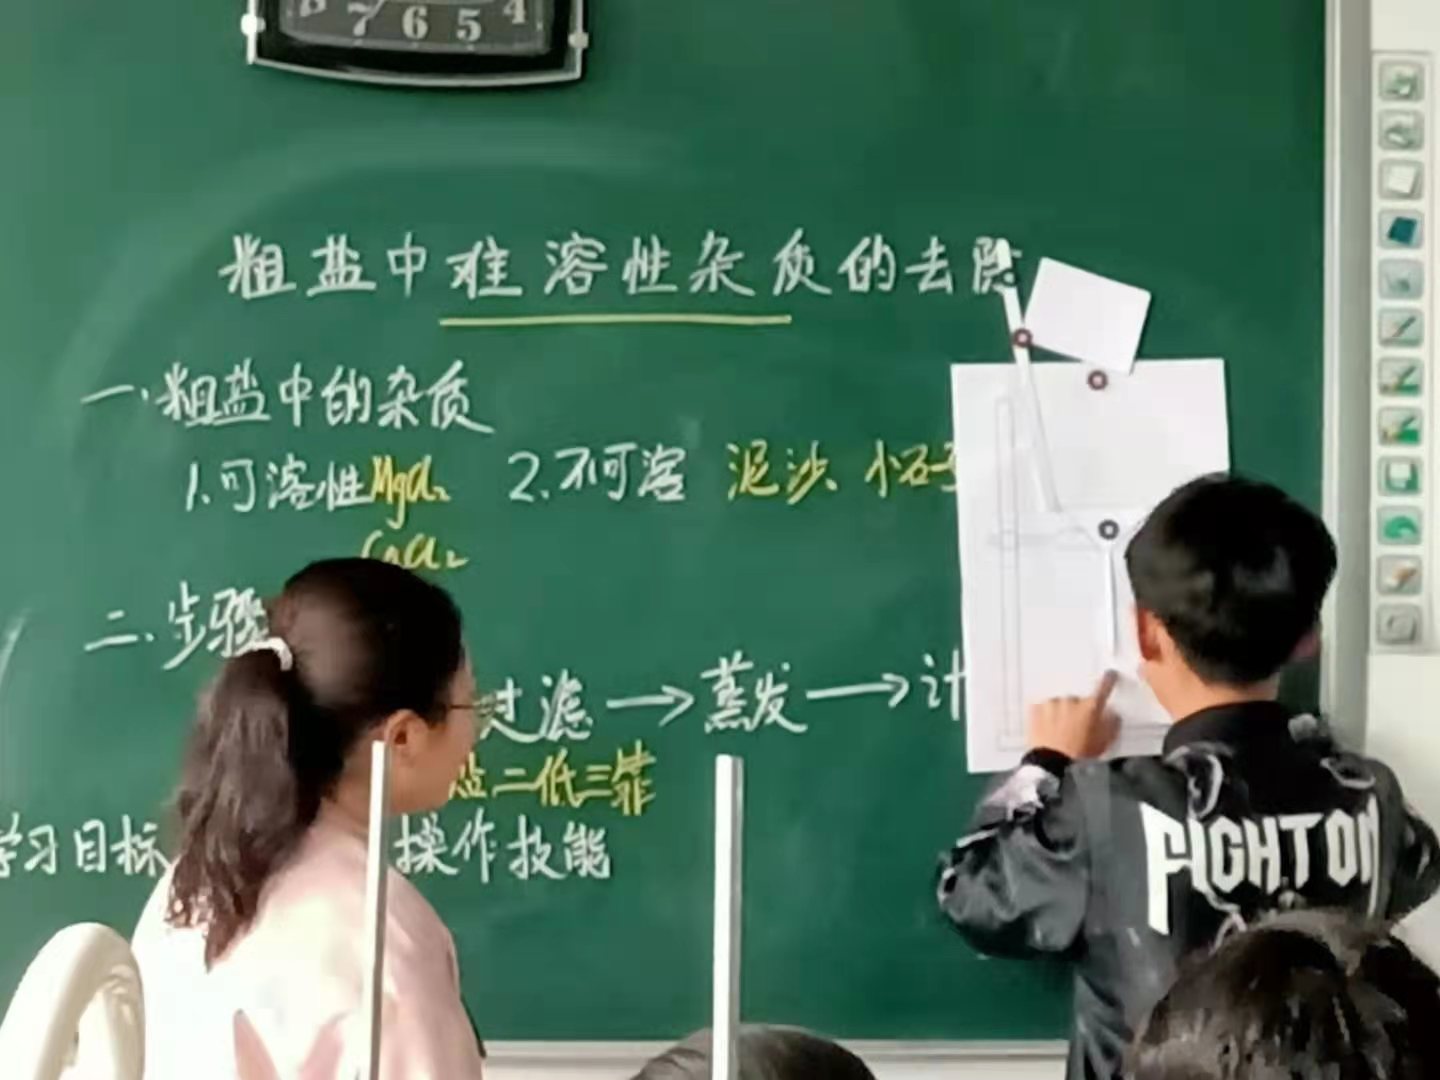 7 6 5 4
粗盐中难溶性杂质的去除
一.粗盐中的杂质
1.可溶性MgCl₂ 2.不可溶 泥沙 小石
CaCl₂
二.步骤
过滤→蒸发→计
二低三靠
学习目标 操作技能
FIGHT ON